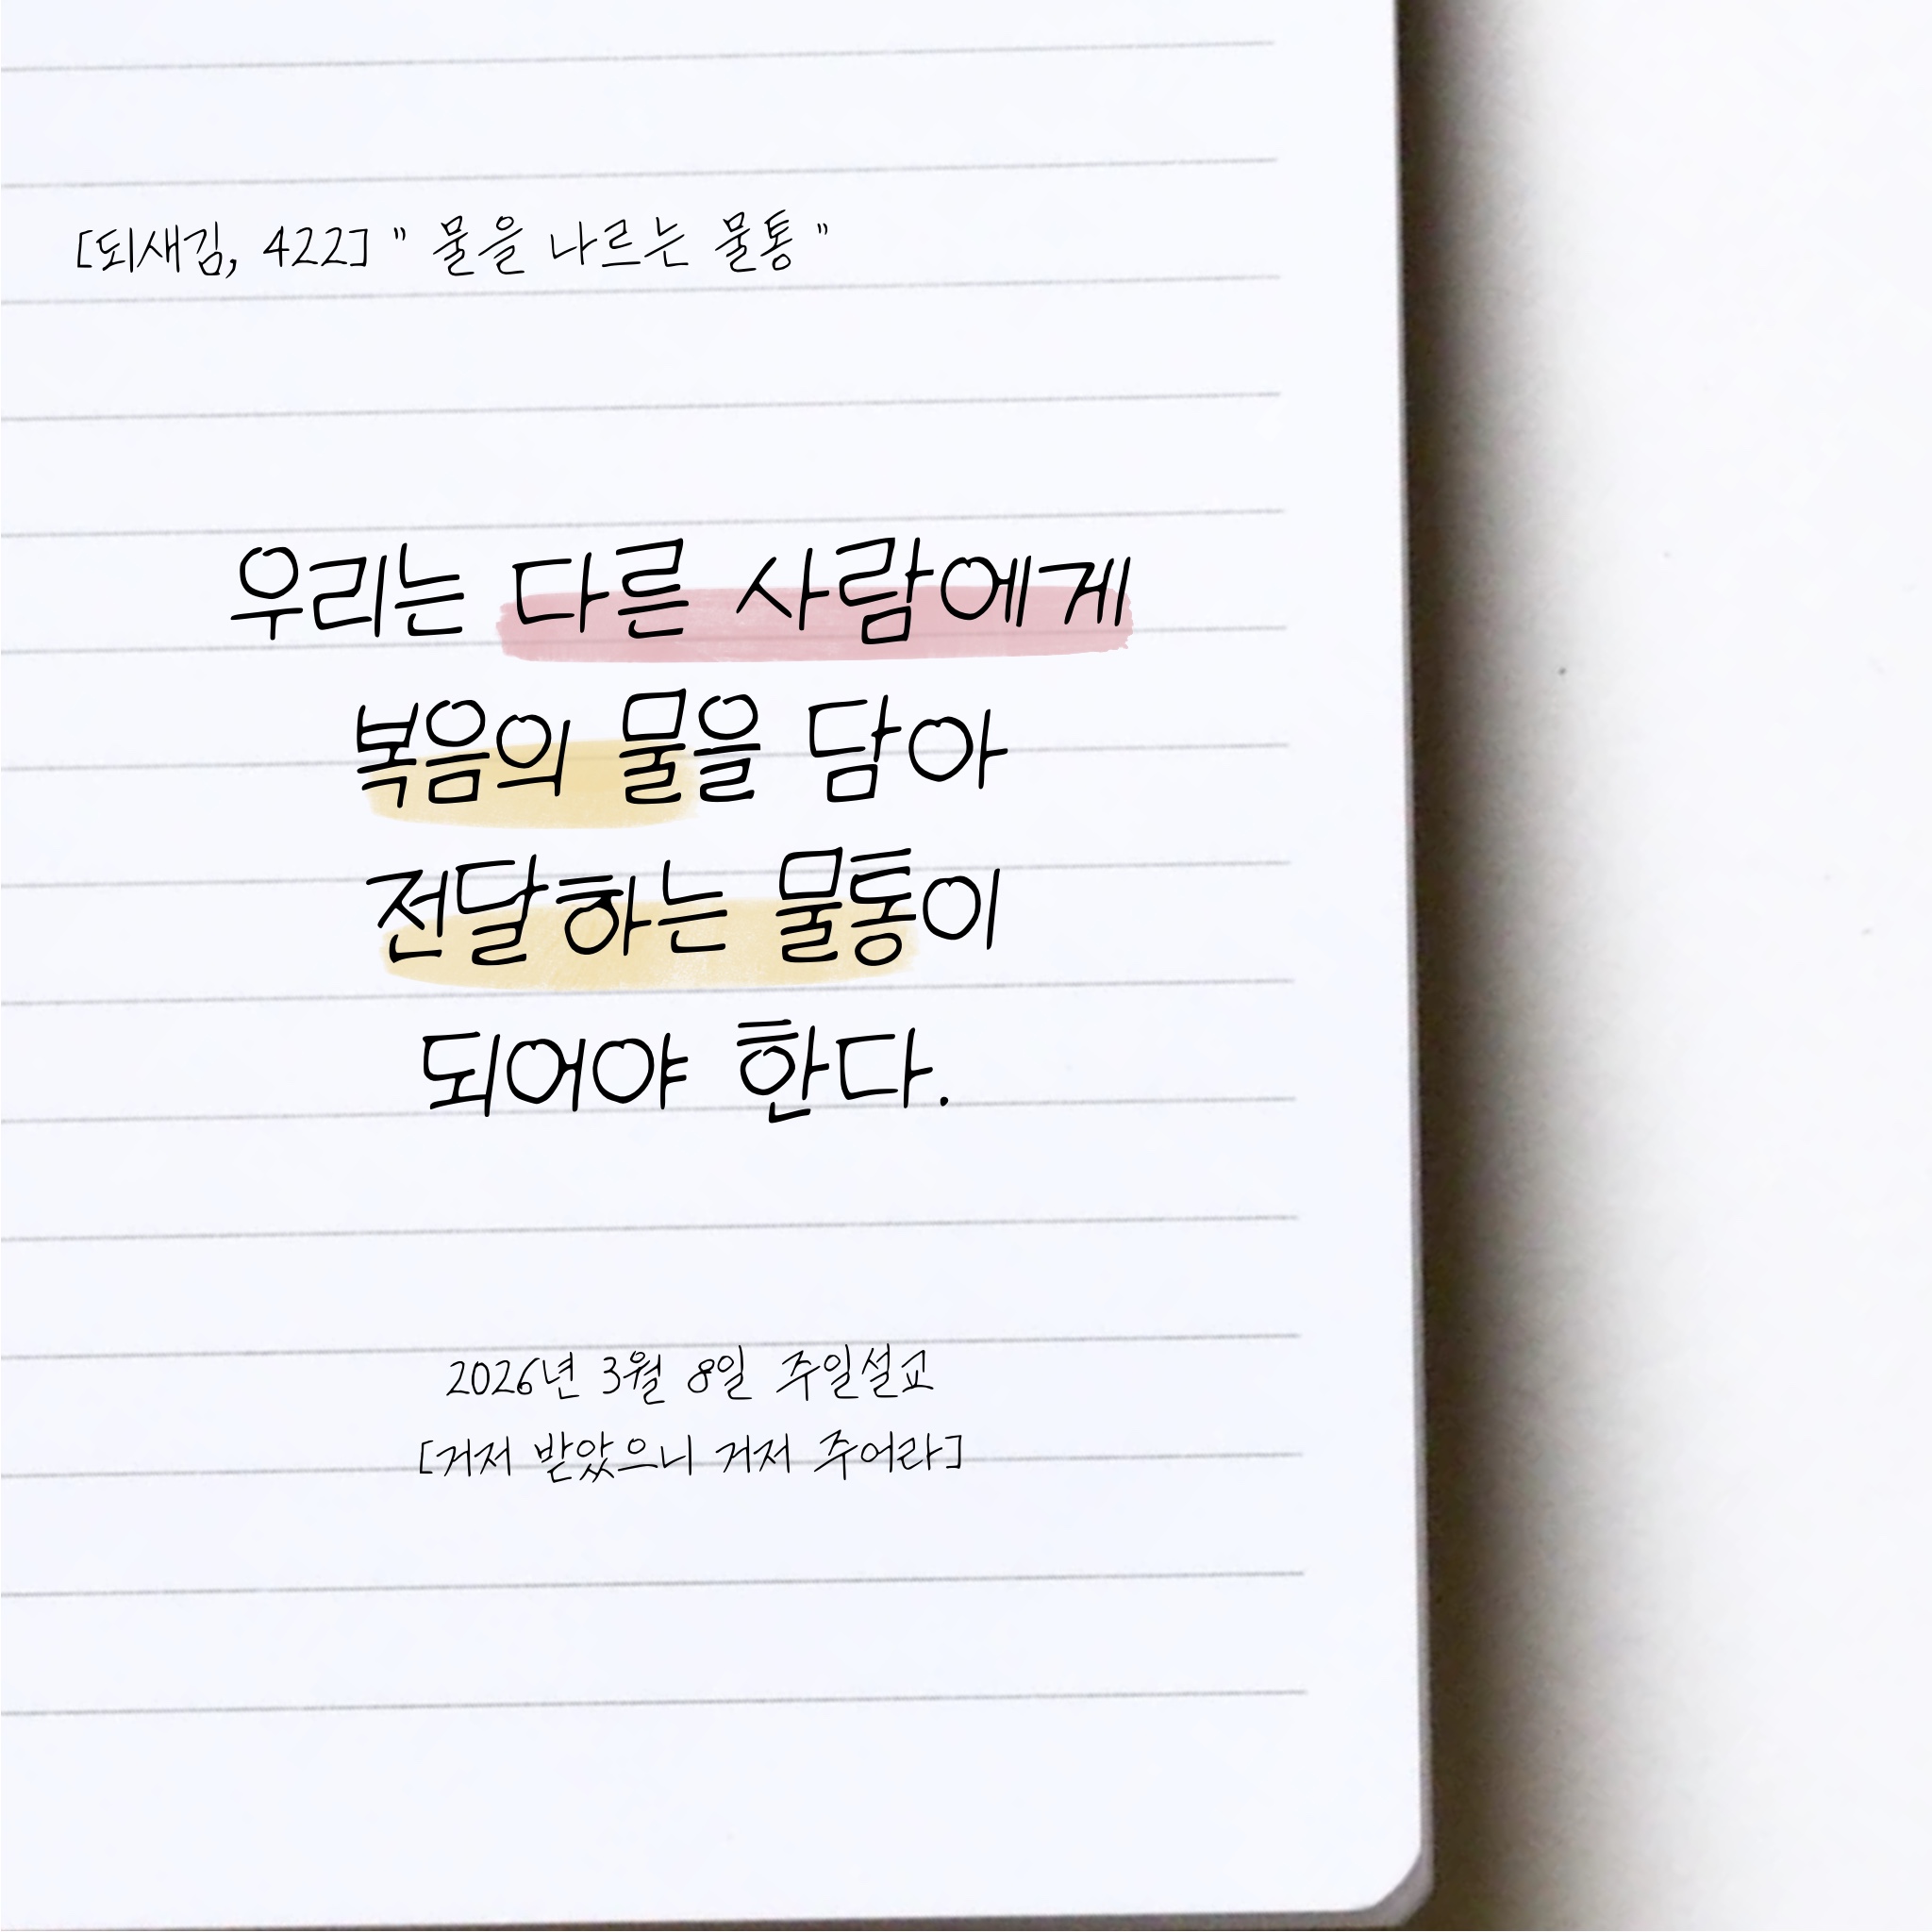 [되새김, 422] " 물을 나르는 물통 "
우리는 다른 사람에게
복음의 물을 담아
전달하는 물통이
되어야 한다.
2026년 3월 8일 주일설교
[거저 받았으니 거저 주어라]